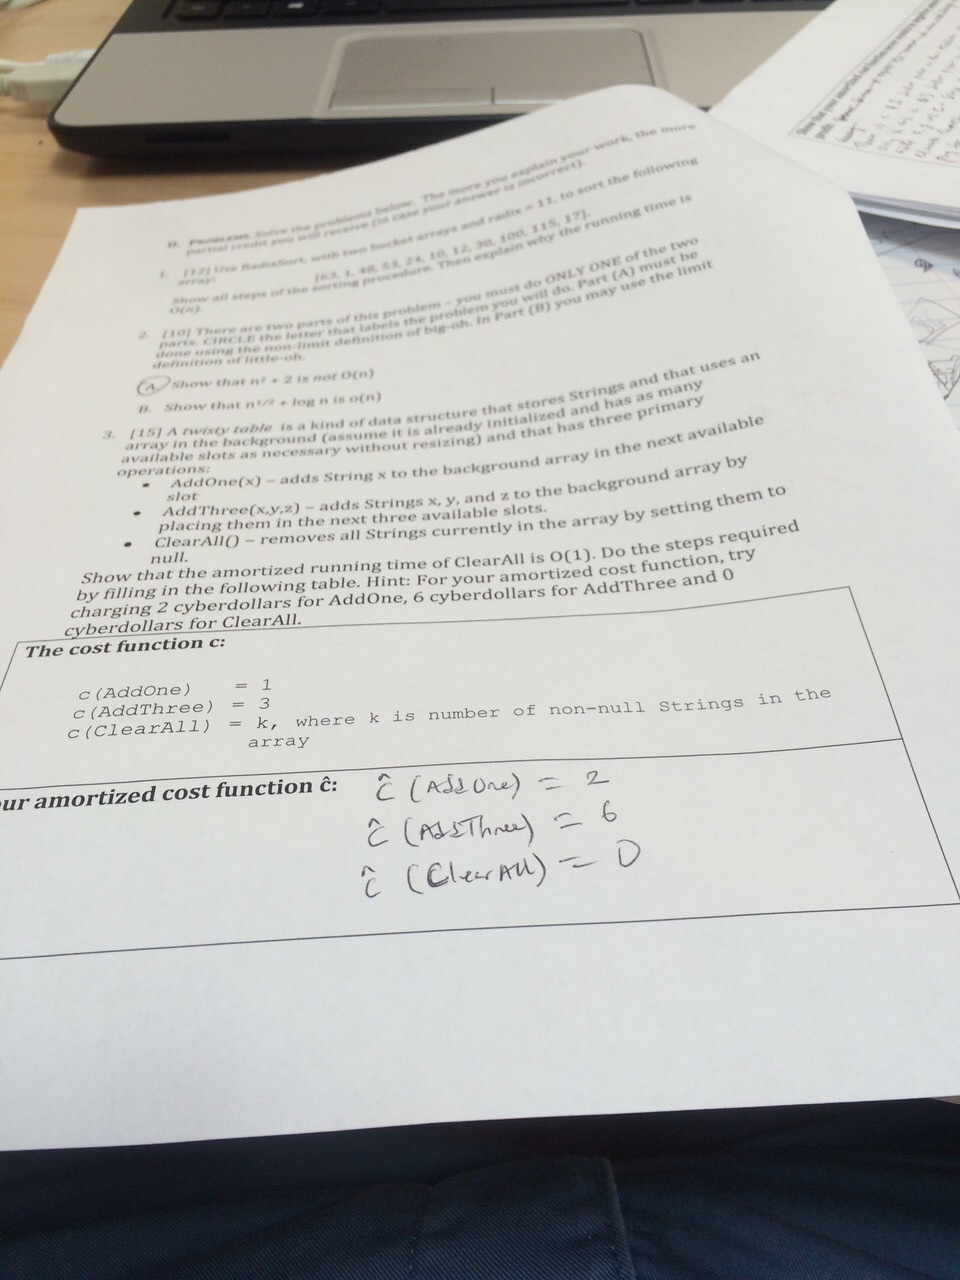 II. PROBLEMS. Solve the problems below. The more you explain your work, the more
partial credit you will receive (in case your answer is incorrect).
1. [12] Use RadixSort, with two bucket arrays and radix = 11, to sort the following
array:
[63, 1, 48, 53, 24, 10, 12, 30, 100, 115, 17].
Show all steps of the sorting procedure. Then explain why the running time is
O(n).
2. [10] There are two parts of this problem – you must do ONLY ONE of the two
parts. CIRCLE the letter that labels the problem you will do. Part (A) must be
done using the non-limit definition of big-oh. In Part (B) you may use the limit
definition of little-oh.
A. Show that n² + 2 is not O(n)
B. Show that n^1/2 + log n is o(n)
3. [15] A twisty table is a kind of data structure that stores Strings and that uses an
array in the background (assume it is already initialized and has as many
available slots as necessary without resizing) and that has three primary
operations:
• AddOne(x) – adds String x to the background array in the next available
slot
• AddThree(x,y,z) – adds Strings x, y, and z to the background array by
placing them in the next three available slots.
• ClearAll() – removes all Strings currently in the array by setting them to
null.
Show that the amortized running time of ClearAll is O(1). Do the steps required
by filling in the following table. Hint: For your amortized cost function, try
charging 2 cyberdollars for AddOne, 6 cyberdollars for AddThree and 0
cyberdollars for ClearAll.
The cost function c:
c(AddOne) = 1
c(AddThree) = 3
c(ClearAll) = k, where k is number of non-null Strings in the
array
ur amortized cost function ĉ: ĉ (AddOne) = 2
ĉ (AddThree) = 6
ĉ (ClearAll) = 0